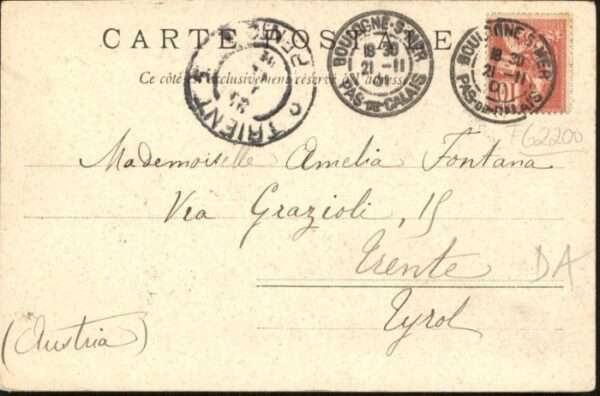 CARTE POSTALE
Ce côté exclusivement réservé à l'adresse
TRIENT
BOULOGNE-S-MER
18 30
21 -11
PAS-DE-CALAIS
BOULOGNE-S-MER
18 30
21 -11
PAS-DE-CALAIS
F62200
Mademoiselle Amelia Fontana
Via Grazioli, 15
Trente
DA
Tyrol
(Austria)